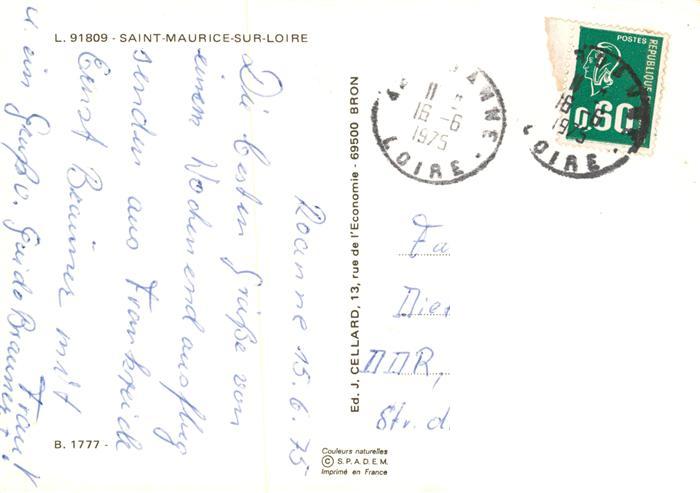 L. 91809 - SAINT-MAURICE-SUR-LOIRE
Roanne 15.6.75
Die besten Grüße von
einem Wochenendausflug
senden aus Frankreich
Ernst Brauner mit
Frau!
u. ein Gruß v. Guido Brauner!
B. 1777 -
Ed. J. CELLARD, 13, rue de l'Economie - 69500 BRON
Couleurs naturelles
© S.P.A.D.E.M.
Imprimé en France
ROANNE
11 H
16 - 6
1975
LOIRE
POSTES
REPUBLIQUE
0,60
ROANNE
11
16 - 6
1975
LOIRE
Fa
Die
DDR,
Str. d